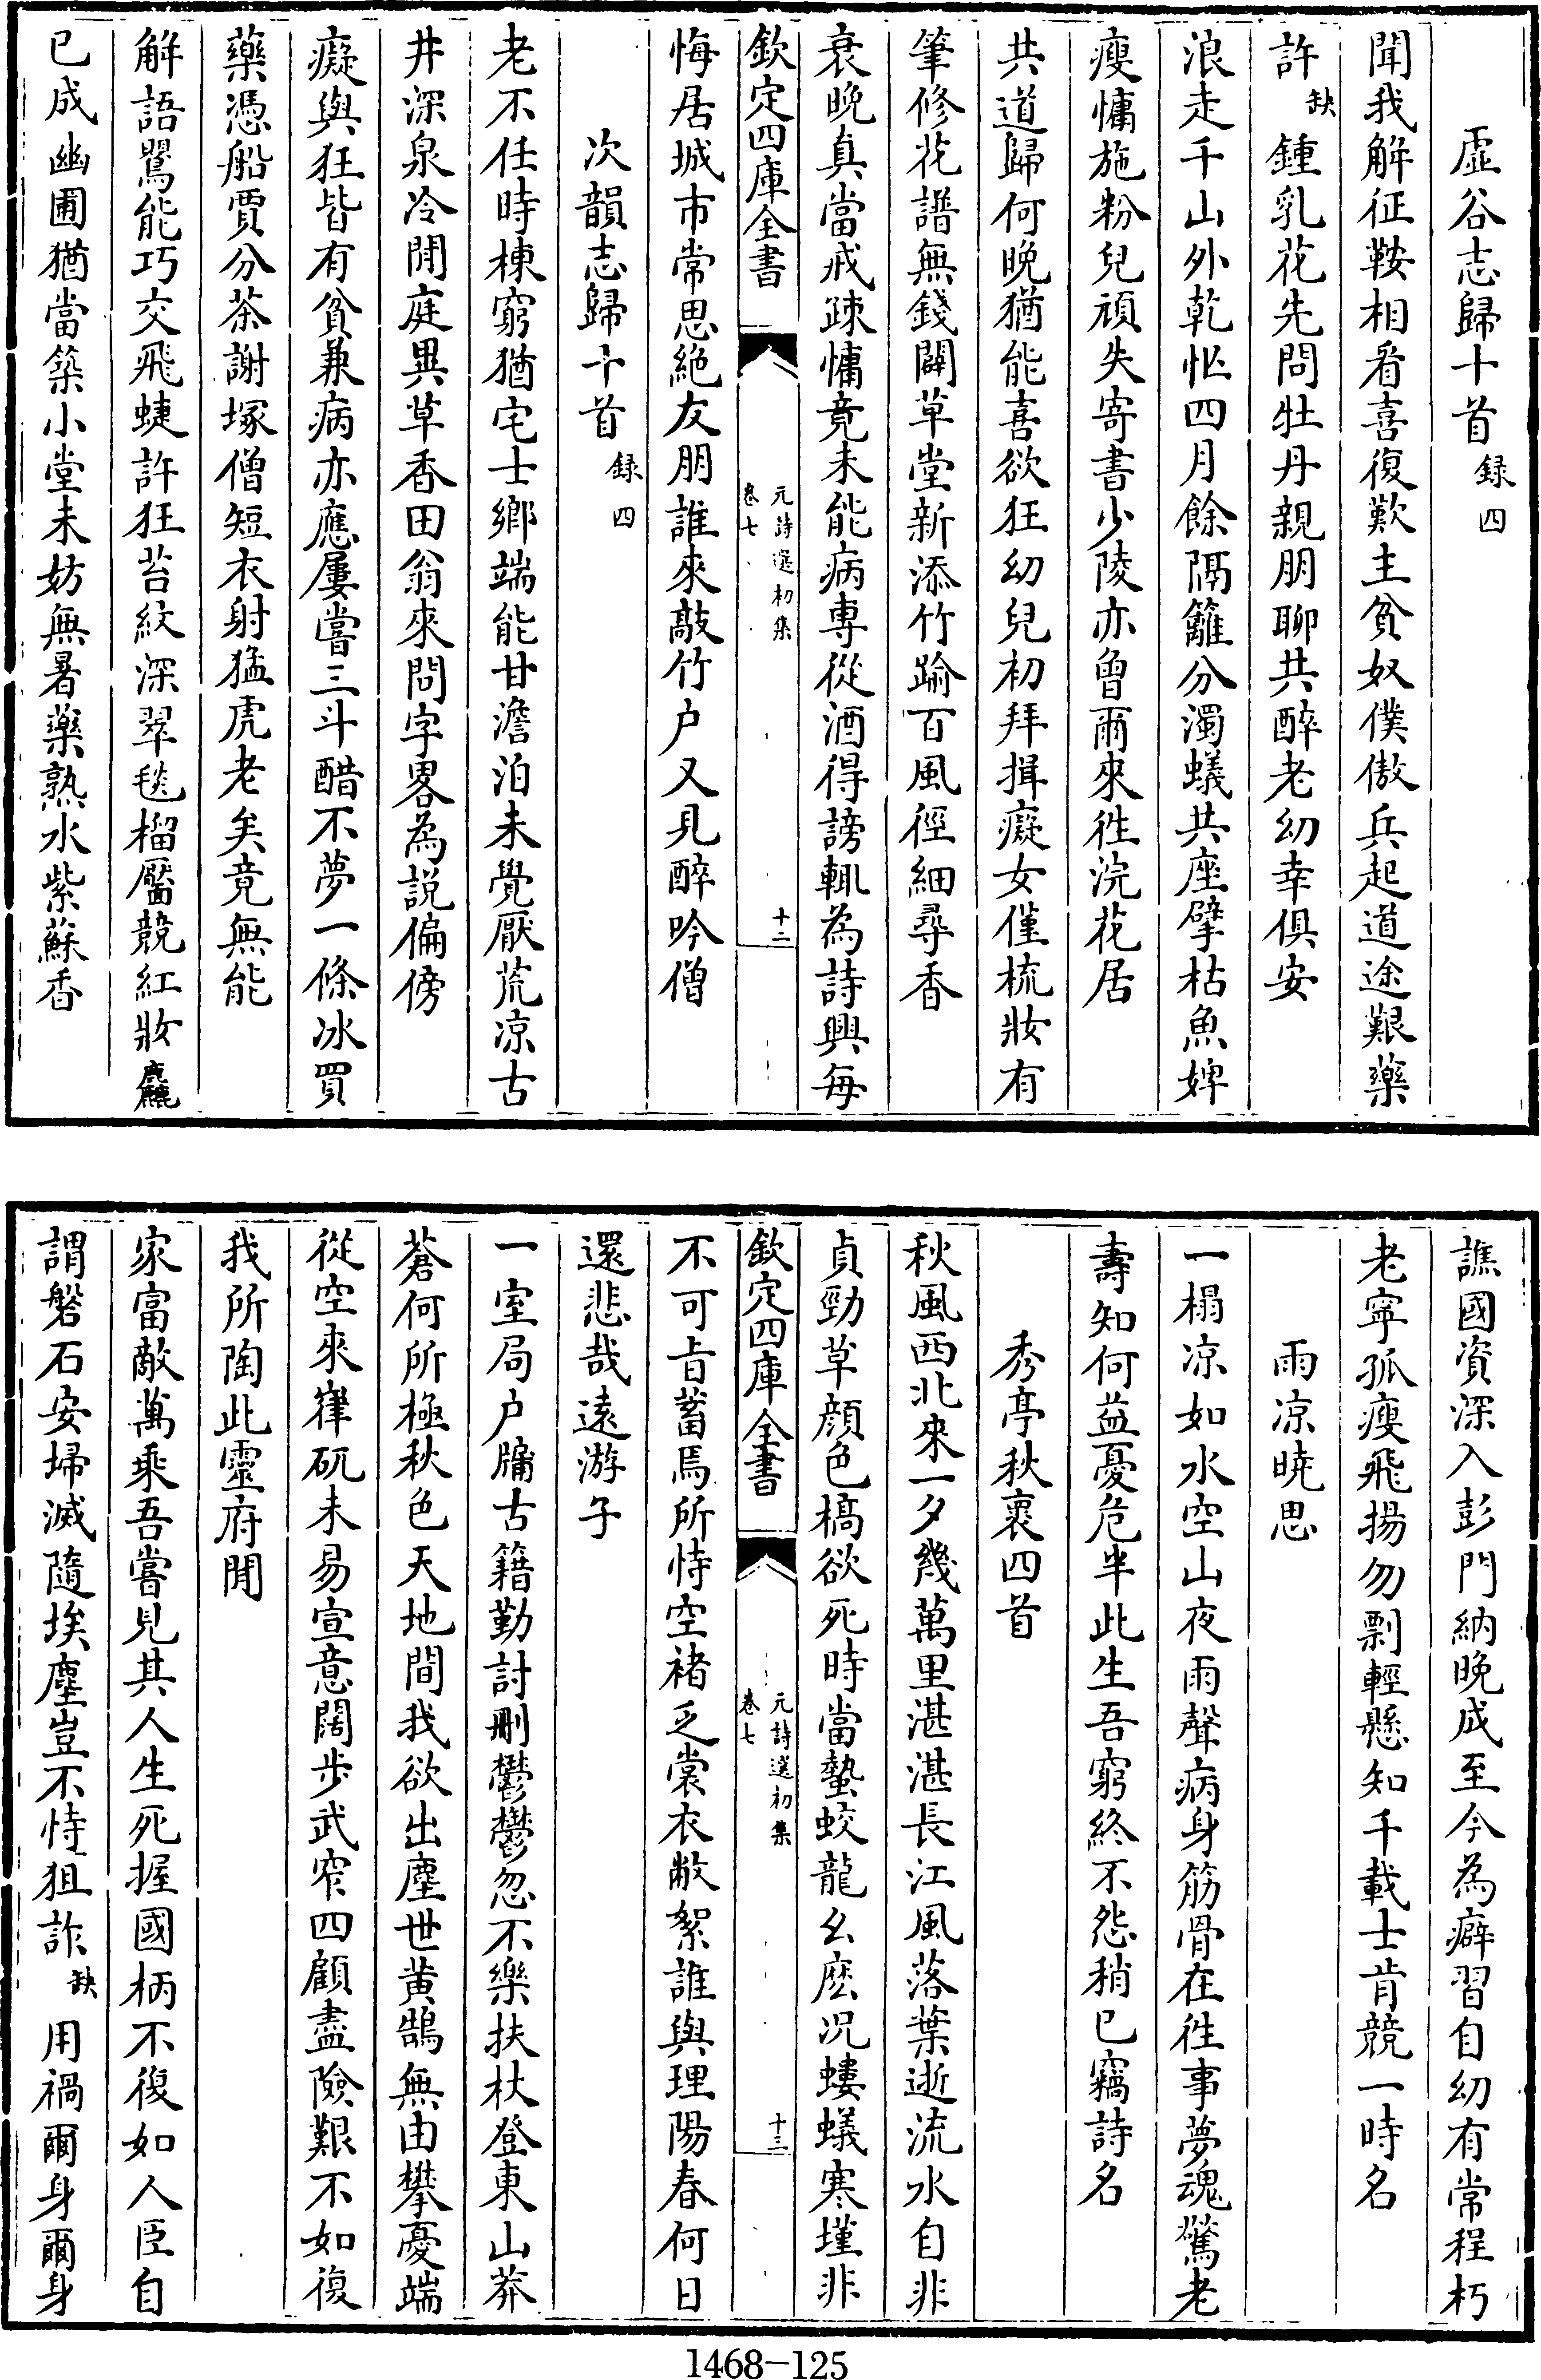 虛谷志歸十首錄四
聞我解征鞍相看喜復歎主貧奴僕傲兵起道途艱藥
許缺鍾乳花先問牡丹親朋聊共醉老幼幸俱安
浪走千山外乾忙四月餘隔籬分濁蟻共座擘枯魚婢
瘦慵施粉兒頑失寄書少陵亦曾爾來往浣花居
共道歸何晚猶能喜欲狂幼兒初拜揖癡女僅梳妝有
筆修花譜無錢闢草堂新添竹踰百風徑細尋香
衰晚真當戒疎慵竟未能病専從酒得謗輒為詩興每
欽定四庫全書
元詩選初集
卷七
十二
悔居城市常思絶友朋誰來敲竹户又見醉吟僧
次韻志歸十首錄四
老不任時棟窮猶宅士鄉端能甘澹泊未覺厭荒凉古
井深泉冷閒庭異草香田翁來問字畧為説偏傍
癡與狂皆有貧兼病亦應屢嘗三斗醋不夢一條冰買
藥憑船賈分茶謝塚僧短衣射猛虎老矣竟無能
解語鸎能巧交飛蜨許狂苔紋深翠毯榴靨競紅妝麤
已成幽圃猶當築小堂未妨無暑藥熟水紫蘇香
譙國資深入彭門納晚成至今為癖習自幼有常程朽
老寧孤瘦飛揚勿剽輕懸知千載士肯競一時名
雨凉曉思
一榻凉如水空山夜雨聲病身筋骨在往事夢魂驚老
壽知何益憂危半此生吾窮終不怨稍已竊詩名
秀亭秋裏四首
秋風西北來一夕幾萬里湛湛長江風落葉逝流水自非
貞勁草顔色槁欲死時當蟄蛟龍幺麽况螻蟻寒墐非
欽定四庫全書
元詩選初集
卷七
十三
不可旨蓄焉所恃空褚乏裳衣敝絮誰與理陽春何日
還悲哉遠游子
一室局户牖古籍勤討刪鬱鬱忽不樂扶杖登東山莽
蒼何所極秋色天地間我欲出塵世黄鵠無由攀憂端
從空來嵂矹未易宣意闊步武窄四顧盡險艱不如復
我所陶此靈府閒
家富敵萬乘吾嘗見其人生死握國柄不復如人臣自
謂磐石安埽滅隨埃塵豈不恃狙詐缺用禍爾身爾身
1468-125